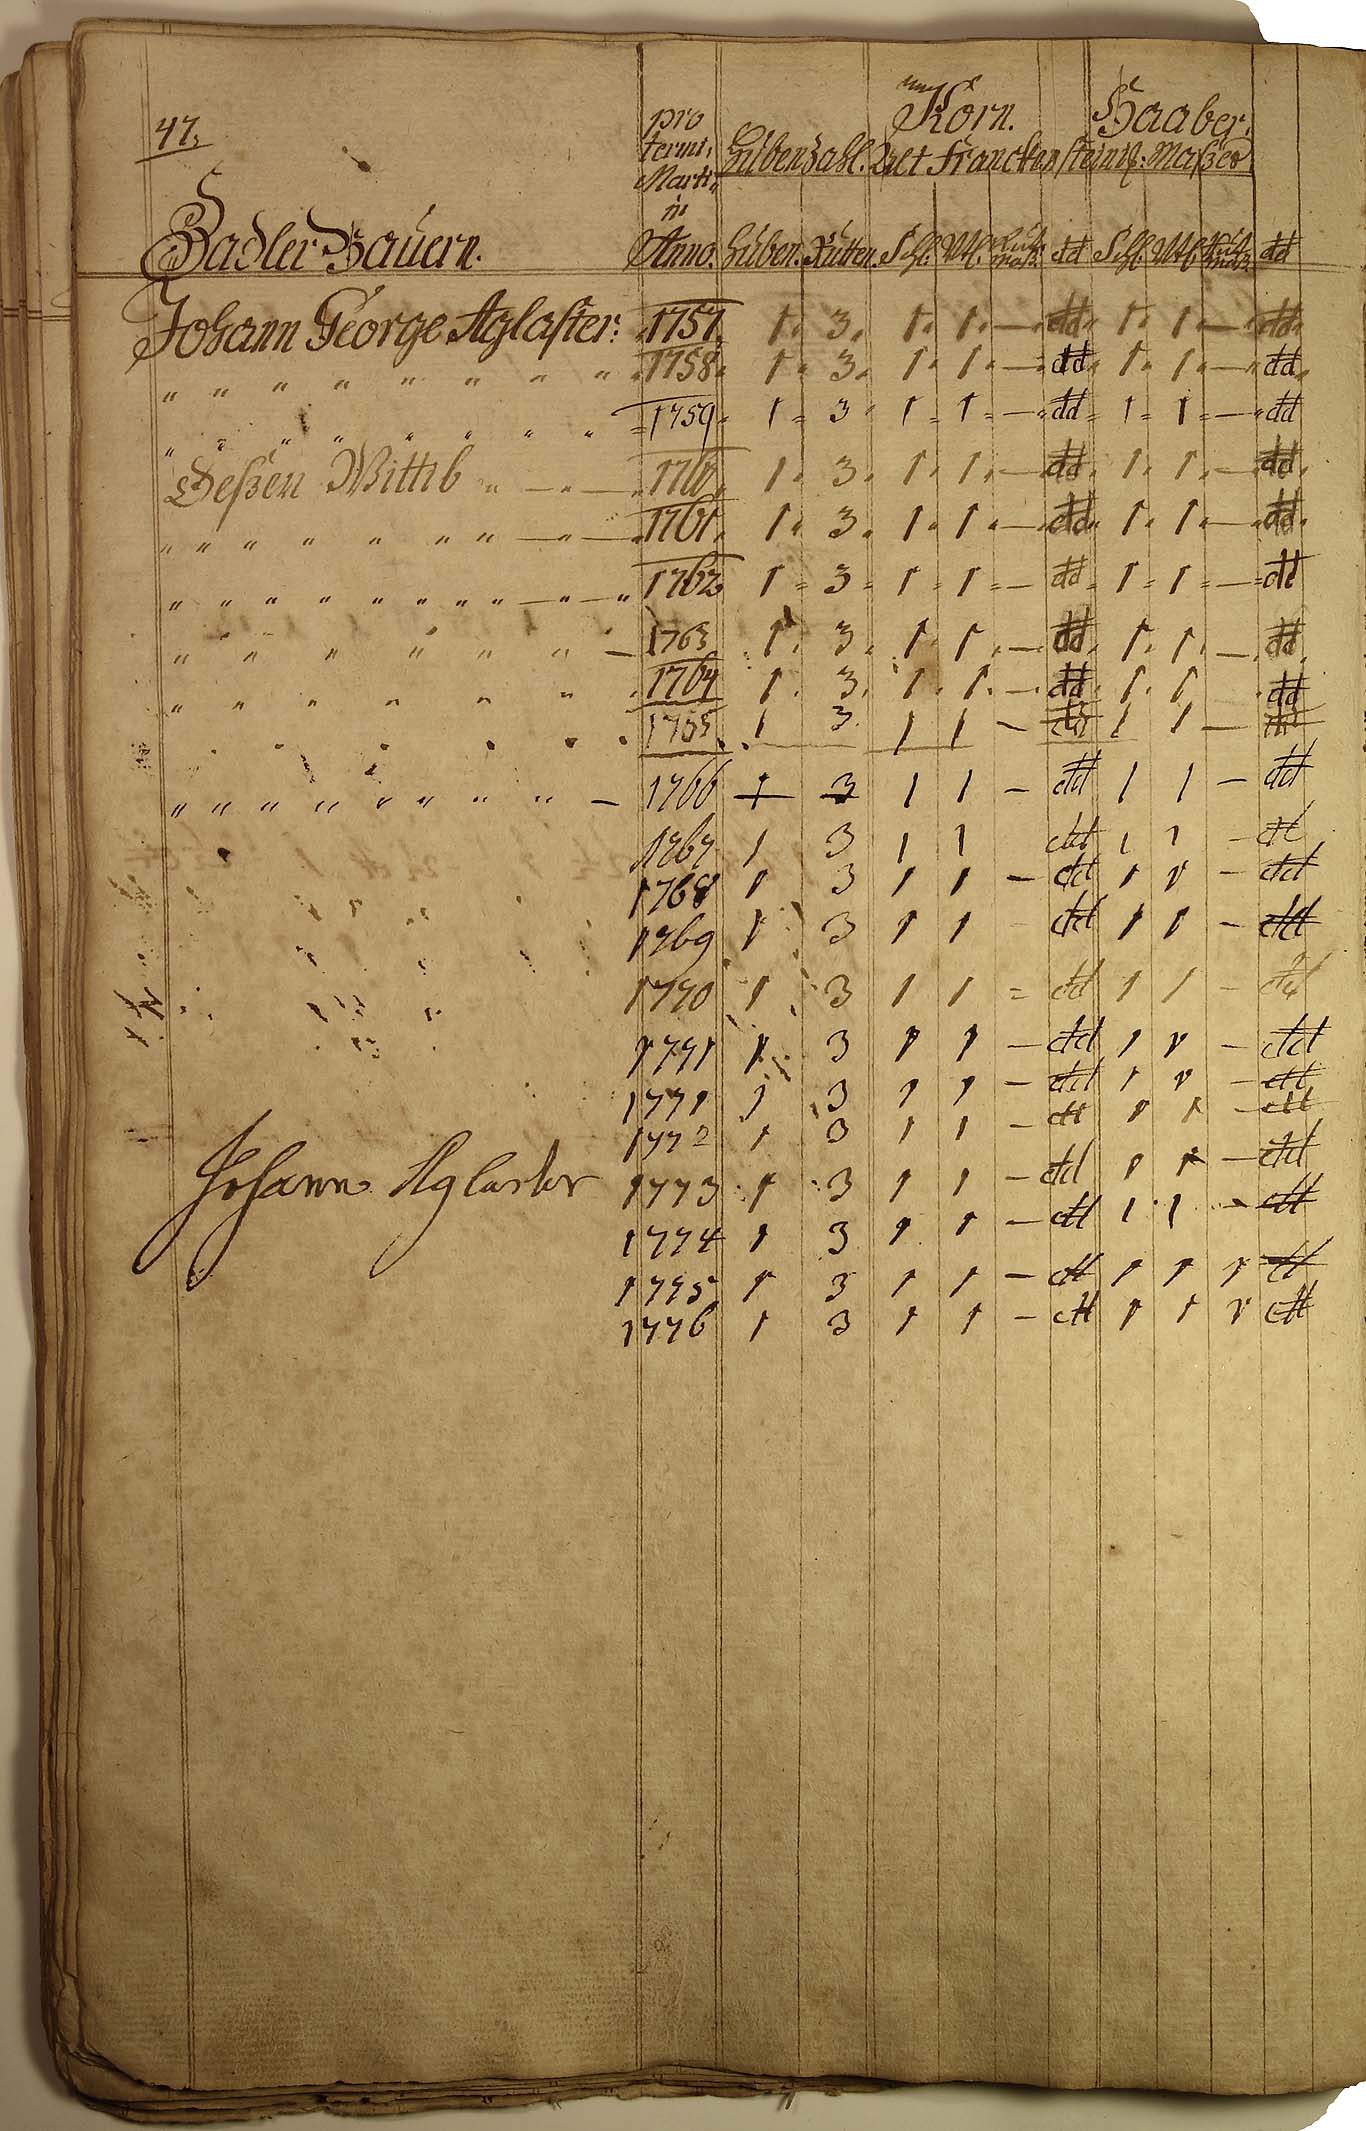 47.
pro termi. Marti. in Anno.
Korn. Haaber.
Hubenzahl. Alt Franckensteinsch: Maßes
Zadler Bauern.
Huben. Rutten. Schl. Vtl. dd Schl. Vtl. dd
Johann George Aglaster: 1757. 1. 3. 1. 1. — dd. 1. 1. — dd.
" " " " " " " " 1758. 1. 3. 1. 1. — dd. 1. 1. — dd.
" " " " " " " " 1759. 1 = 3 1 = 1 = — dd = 1 = 1 = — dd
Deßen Wittib " — " — 1760. 1. 3. 1. 1. — dd. 1. 1. — dd.
" " " " " " " — " — 1761. 1. 3. 1. 1. — dd. 1. 1. — dd.
" " " " " " " " " — " — " 1762 1 = 3 = 1 = 1 = — dd = 1 = 1 = — dd
" " " " " " " — 1763 1. 3. 1. 1. — dd. 1. 1. — dd.
" " " " " " 1764 1. 3. 1. 1. — dd. 1. 1 . dd
1765 1 3. 1 1 — dd 1 1 — dd
" " " " " " " " " — 1766 1 3 1 1 — dd 1 1 — dd
1767 1 3 1 1 dd 1 1 — dd
1768 1 3 1 1 — dd 1 1 — dd
1769 1 3 1 1 dd 1 1 — dd
1770 1 3 1 1 = dd 1 1 — dd
1771 1 3 1 1 — dd 1 1 — dd
1771 1 3 1 1 — dd 1 1 — dd
1772 1 3 1 1 — dd 1 1 — dd
Johann Aglaster 1773 1 3 1 1 — dd 1 1 — dd
1774 1 3 1 1 — dd 1 1 — dd
1775 1 3 1 1 — dd 1 1 1 dd
1776 1 3 1 1 — dd 1 1 1 dd